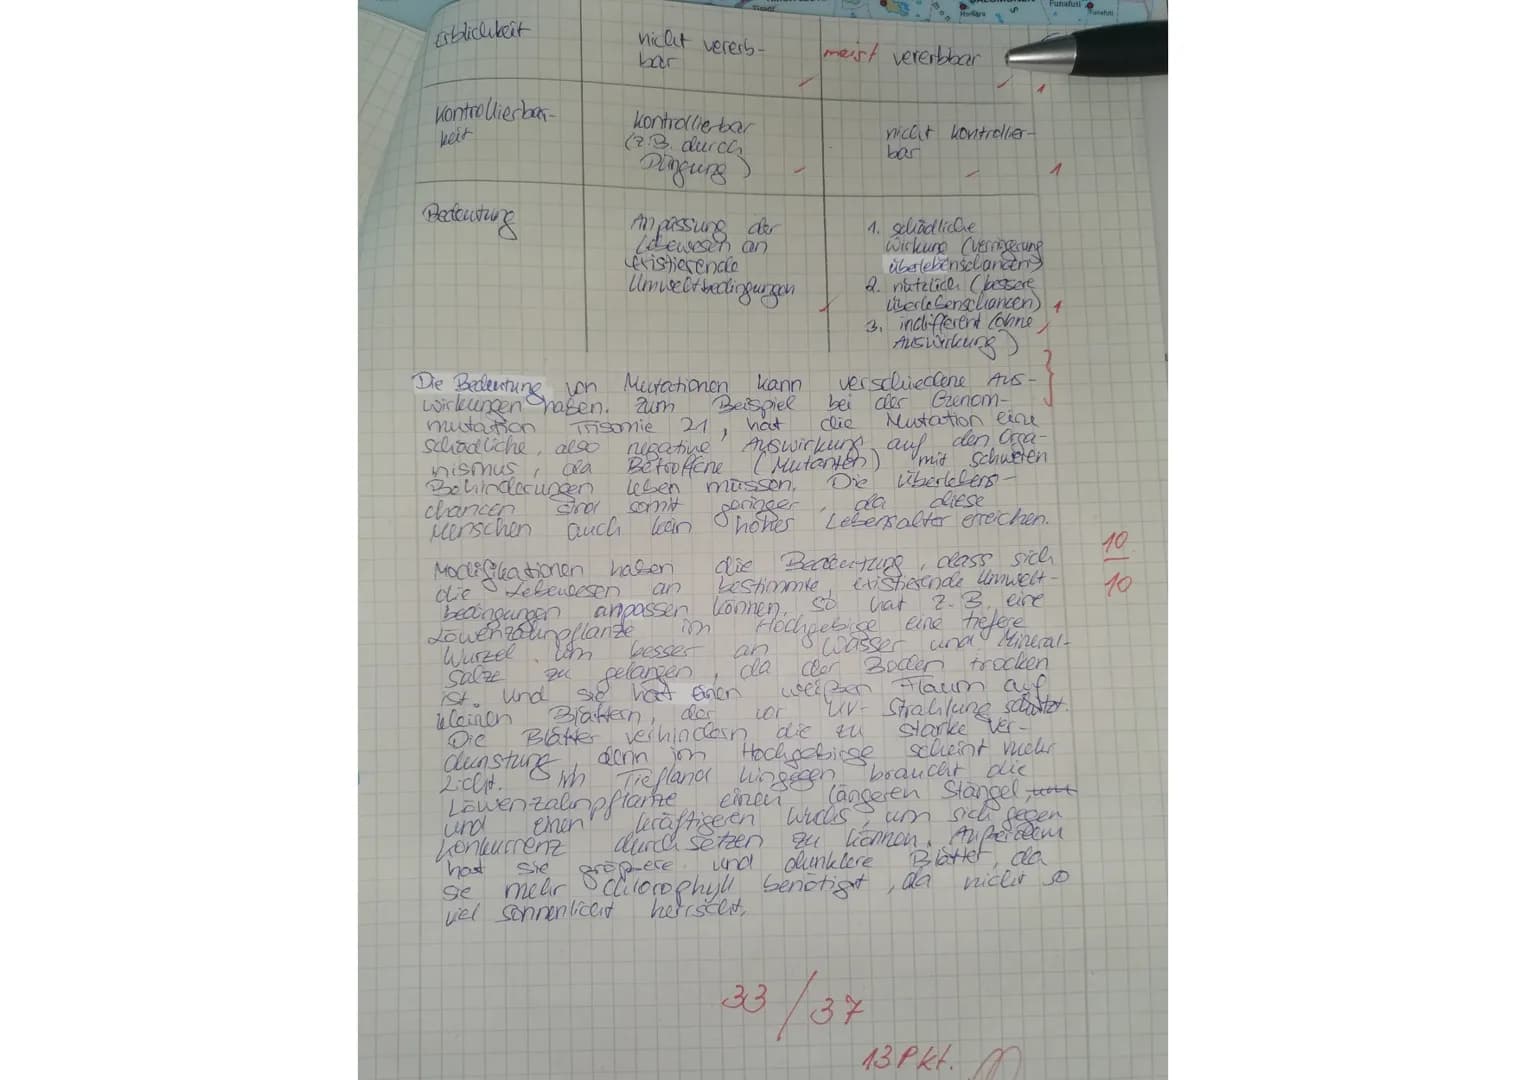 Funafuti
Erblichkeit
nicht vererb-
bar
meist vererbbar
1
Kontrollierbar-
keit
Kontrollierbar
(z.B. durch
Düngung)
nicht kontrollier-
bar
1
Bedeutung
Anpassung der
Lebewesen an
existierende
Umweltbedingungen
1. schädliche
Wirkung (Verringerung
Überlebenschancen)
2. nützlich (bessere
Überlebenschancen)
3. indifferent (ohne
Auswirkung)
1
Die Bedeutung von Mutationen kann verschiedene Aus-
wirkungen haben. Zum Beispiel bei der Genom-
mutation Trisomie 21, hat die Mutation eine
schädliche, also negative Auswirkung auf den Orga-
nismus, da Betroffene (Mutanten) mit schweren
Behinderungen leben müssen. Die Überlebens-
chancen sind somit geringer, da diese
Menschen auch kein hohes Lebensalter erreichen.
10
10
Modifikationen haben die Bedeutung, dass sich
die Lebewesen an bestimmte, existierende Umwelt-
bedingungen anpassen können. So hat z.B. eine
Löwenzahnpflanze im Hochgebirge eine tiefere
Wurzel um besser an Wasser und Mineral-
salze zu gelangen, da der Boden trocken
ist. Und sie hat einen weißen Flaum auf
kleinen Blättern, der vor UV-Strahlung schützt.
Die Blätter verhindern die zu starke Ver-
dunstung, denn im Hochgebirge scheint mehr
Licht. Im Tiefland hingegen braucht die
Löwenzahnpflanze einen längeren Stängel,
und einen kräftigeren Wuchs, um sich gegen
Konkurrenz durchsetzen zu können. Außerdem
hat sie größere und dunklere Blätter, da
sie mehr Chlorophyll benötigt, da nicht so
viel Sonnenlicht herrscht.
33/37
13 Pkt.